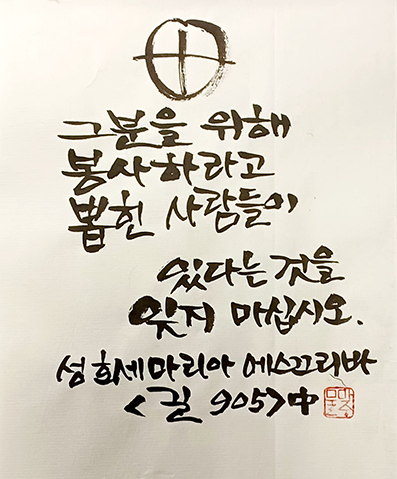 그분을 위해
봉사하라고
뽑힌 사람들이
있다는 것을
잊지 마십시오.
성 호세마리아 에스끄리바
<길 905>中